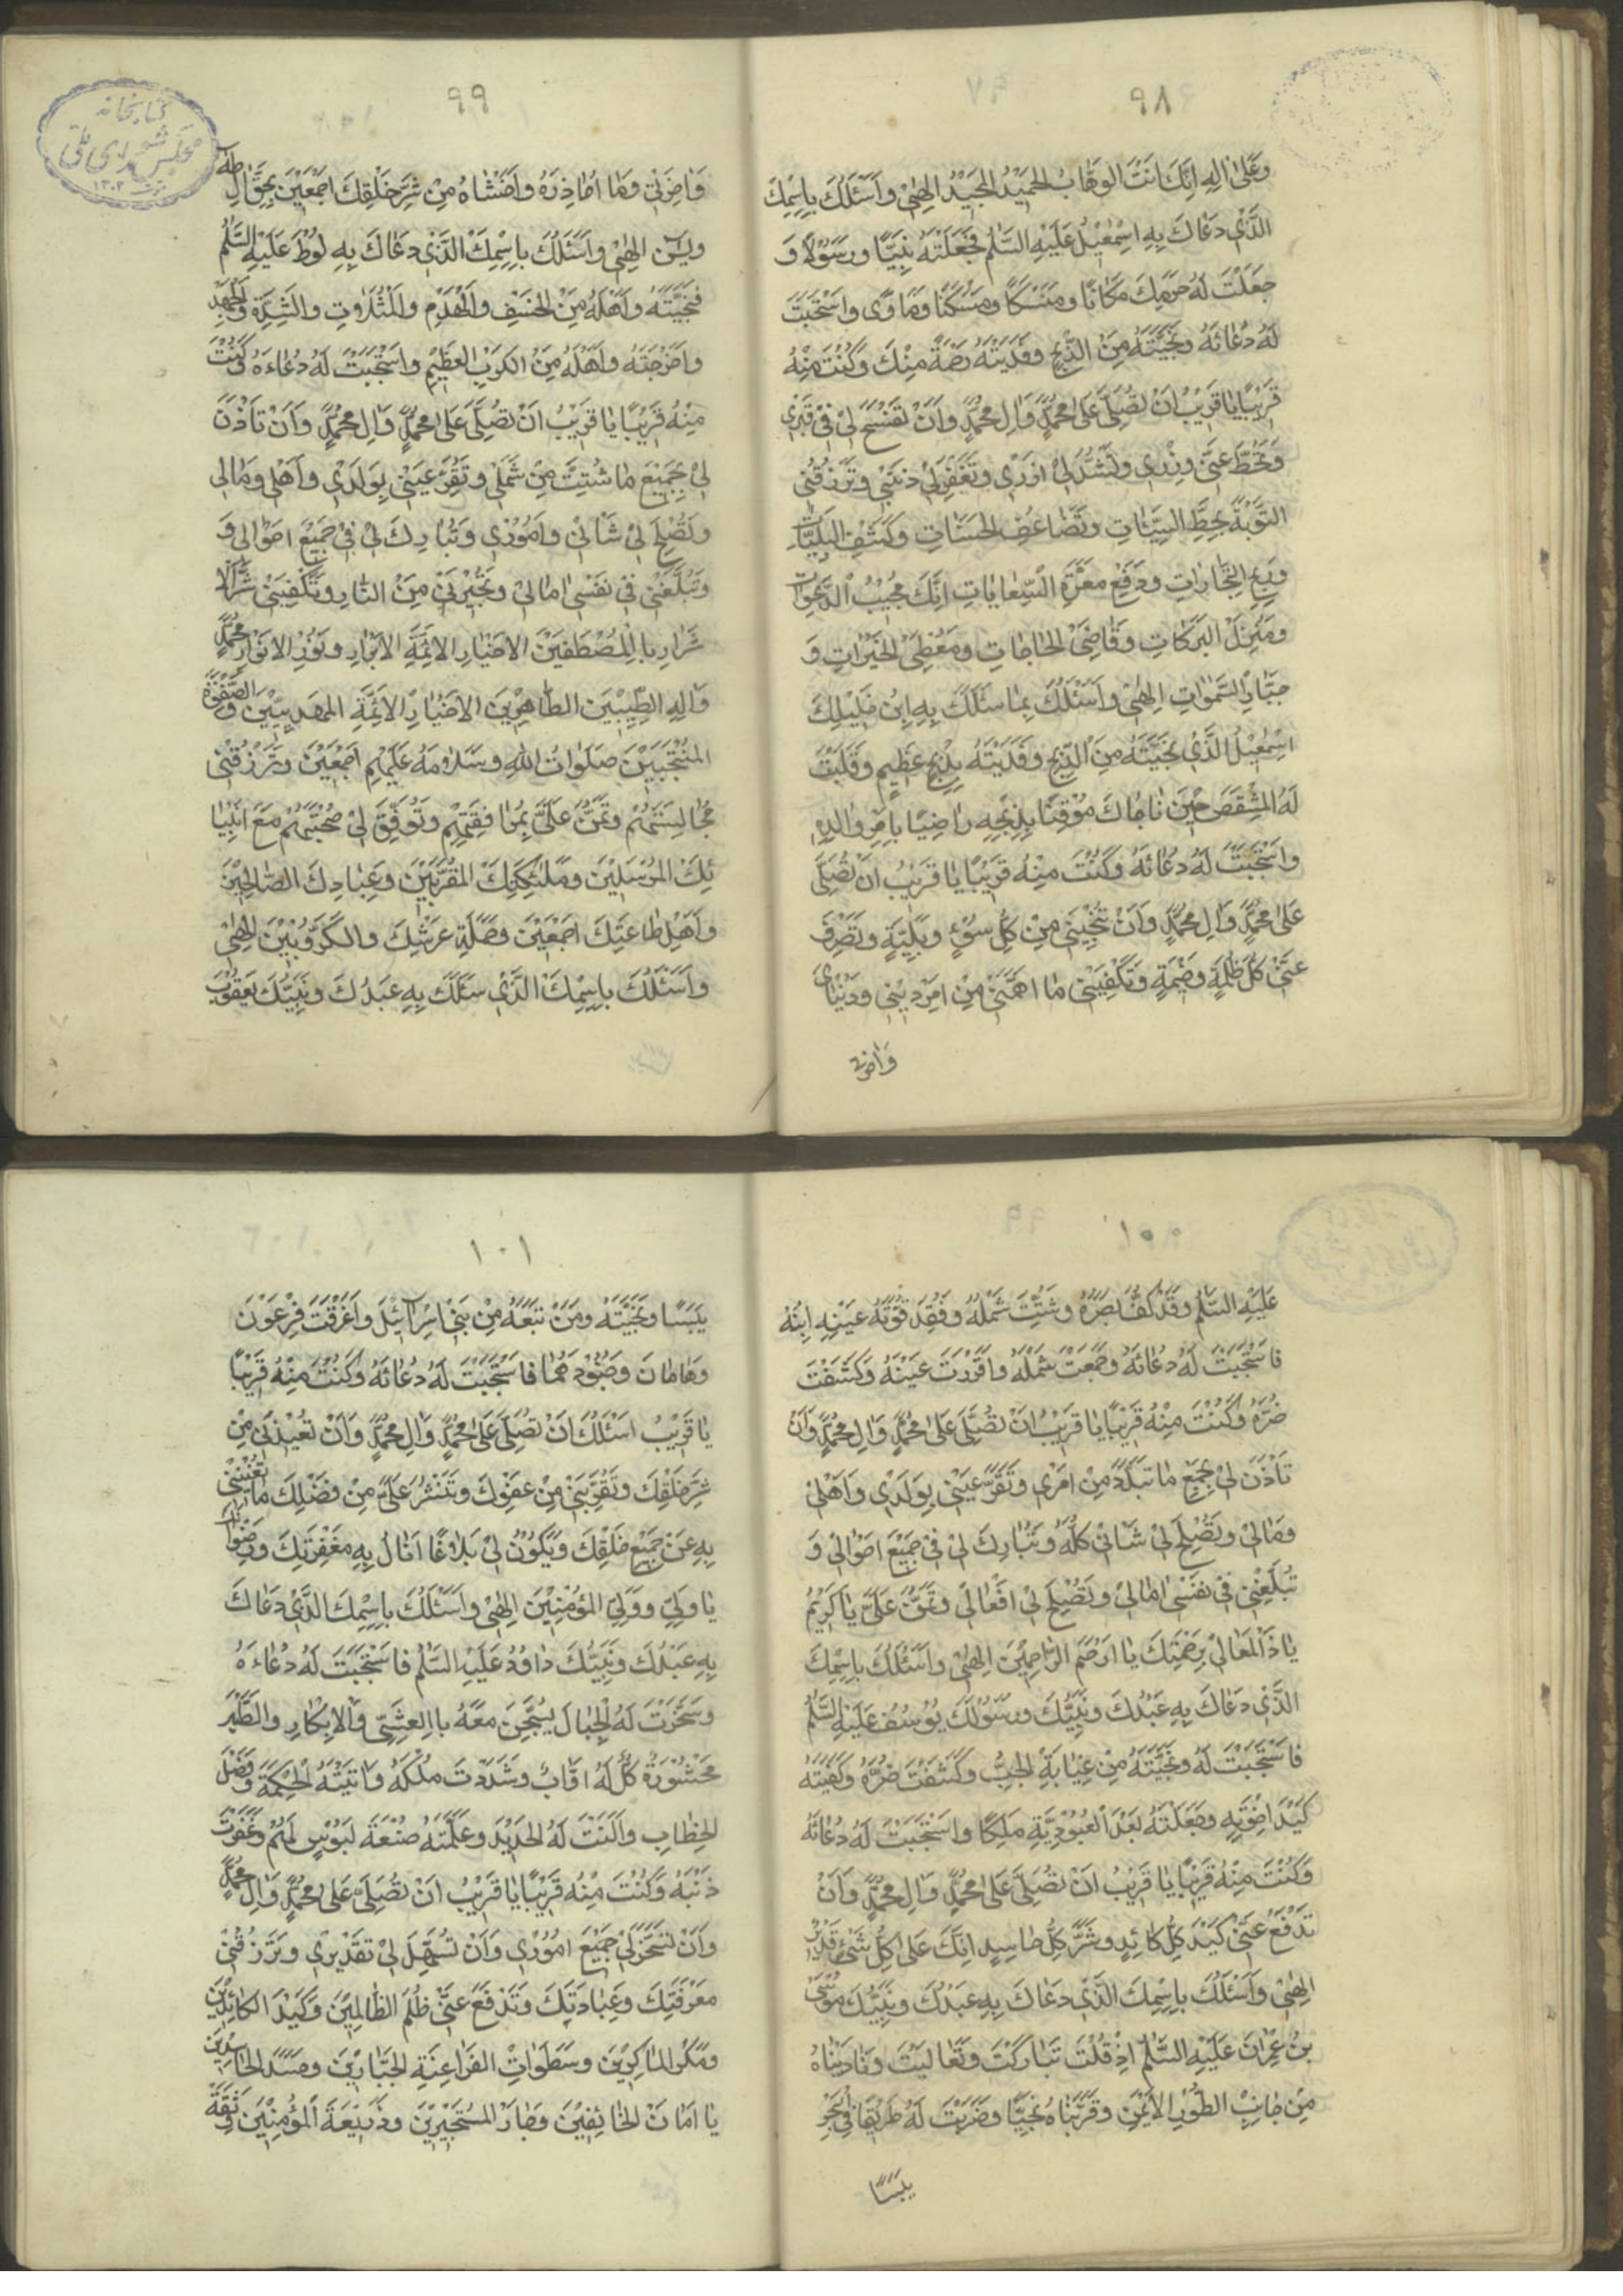 ٩٨
وَعَلٰى اٰلِهِ اِنَّكَ اَنْتَ الوَهَّابُ الحَمِيْدُ المَجِيْدُ اِلٰهِىْ وَاَسْئَلُكَ بِاِسْمِكَ
الَّذِىْ دَعَاكَ بِهِ اِسْمٰعِيْلُ عَلَيْهِ السَّلٰمُ فَجَعَلْتَهُ نَبِيًّا وَرَسُوْلًا وَ
جَعَلْتَ لَهُ حَرَمِكَ مَكَانًا وَمَنْسَكًا وَمَسْكَنًا وَمَاْوًى وَاسْتَجَبْتَ
لَهُ دُعَائَهُ وَنَجَّيْتَهُ مِنَ الذَّبْحِ وَفَدَيْتَهُ رَحْمَةً مِنْكَ وَكُنْتَ مِنْهُ
قَرِيْبًا يَا قَرِيْبُ اَنْ تُصَلِّىَ عَلٰى مُحَمَّدٍ وَاٰلِ مُحَمَّدٍ وَاَنْ تَفْسَحَ لِىْ فِىْ قَبْرِى
وَتَحُطَّ عَنِّىْ وِزْرِى وَتَشُدَّ لِىْ اَزْرِى وَتَغْفِرَ لِىْ ذَنْبِىْ وَتَرْزُقَنِى
التَّوْبَةَ بِحَطِّ السَّيِّئَاتِ وَتَضَاعُفِ الحَسَنَاتِ وَكَشْفِ البَلِيَّاتِ
وَرِبْحِ التِّجَارَاتِ وَدَفْعِ مَعَرَّةِ السِّعَايَاتِ اِنَّكَ مُجِيْبُ الدَّعَوَاتِ
وَمُنْزِلُ البَرَكَاتِ وَقَاضِىْ الحَاجَاتِ وَمُعْطِىْ الخَيْرَاتِ وَ
جَبَّارُ السَّمٰوَاتِ اِلٰهِىْ وَاَسْئَلُكَ بِمَا سَئَلَكَ بِهِ ابْنُ خَلِيْلِكَ
اِسْمٰعِيْلُ الَّذِىْ نَجَّيْتَهُ مِنَ الذَّبْحِ وَفَدَيْتَهُ بِذِبْحٍ عَظِيْمٍ وَقَلَبْتَ
لَهُ المِشْقَصَ حِيْنَ نَاجَاكَ مُوْقِنًا بِذَبْحِهِ رَاضِيًا بِاَمْرِ وَالِدِهِ
وَاسْتَجَبْتَ لَهُ دُعَائَهُ وَكُنْتَ مِنْهُ قَرِيْبًا يَا قَرِيْبُ اَنْ تُصَلِّىَ
عَلٰى مُحَمَّدٍ وَاٰلِ مُحَمَّدٍ وَاَنْ تُنْجِيَنِىْ مِنْ كُلِّ سُوْءٍ وَبَلِيَّةٍ وَتَصْرِفَ
عَنِّىْ كُلَّ ظُلْمَةٍ وَخِيمَةٍ وَتَكْفِيَنِىْ مَا اَهَمَّنِىْ مِنْ اَمْرِ دِيْنِى وَدُنْيَاىَ
وَاٰخِرَتِى
٩٩
وَاٰخِرَتِىْ وَمَا اُحَاذِرُهُ وَاَخْشَاهُ مِنْ شَرِّ خَلْقِكَ اَجْمَعِيْنَ بِحَقِّ اٰلِ طٰهٰ
وَيٰسٓ اِلٰهِىْ وَاَسْئَلُكَ بِاِسْمِكَ الَّذِىْ دَعَاكَ بِهِ لُوْطٌ عَلَيْهِ السَّلٰمُ
فَنَجَّيْتَهُ وَاَهْلَهُ مِنَ الخَسْفِ وَالْهَدْمِ وَالْمَثُلَاتِ وَالشِّدَّةِ وَالجُهْدِ
وَاَخْرَجْتَهُ وَاَهْلَهُ مِنَ الكَرْبِ العَظِيْمِ وَاسْتَجَبْتَ لَهُ دُعَاءَهُ وَكُنْتَ
مِنْهُ قَرِيْبًا يَا قَرِيْبُ اَنْ تُصَلِّىَ عَلٰى مُحَمَّدٍ وَاٰلِ مُحَمَّدٍ وَاَنْ تَاْذَنَ
لِىْ بِجَمِيْعِ مَا شُتِّتَ مِنْ شَمْلِىْ وَتُقِرَّ عَيْنِىْ بِوَلَدِىْ وَاَهْلِى وَمَالِى
وَتُصْلِحَ لِىْ شَاْنِىْ وَاُمُوْرِى وَتُبَارِكَ لِىْ فِىْ جَمِيْعِ اَحْوَالِى وَ
وَتُبَلِّغَنِىْ فِىْ نَفْسِى اٰمَالِىْ وَتُجِيْرَنِىْ مِنَ النَّارِ وَتَكْفِيَنِىْ شَرَّ الْاَ
شْرَارِ بِالْمُصْطَفَيْنَ الاَخْيَارِ الاَئِمَّةِ الاَبْرَارِ وَنُوْرِ الاَنْوَارِ مُحَمَّدٍ
وَاٰلِهِ الطَّيِّبِيْنَ الطَّاهِرِيْنَ الاَخْيَارِ الاَئِمَّةِ المَهْدِيِّيْنَ وَالصَّفْوَةِ
المُنْتَجَبِيْنَ صَلَوَاتُ اللّٰهِ وَسَلَامُهُ عَلَيْهِمْ اَجْمَعِيْنَ وَتَرْزُقَنِى
مُجَالَسَتَهُمْ وَتَمُنَّ عَلَىَّ بِمُرَافَقَتِهِمْ وَتُوَفِّقَ لِىْ صُحْبَتَهُمْ مَعَ اَنْبِيَا
ئِكَ المُرْسَلِيْنَ وَمَلٰئِكَتِكَ المُقَرَّبِيْنَ وَعِبَادِكَ الصَّالِحِيْنَ
وَاَهْلِ طَاعَتِكَ اَجْمَعِيْنَ وَحَمَلَةِ عَرْشِكَ وَالكَرُّوْبِيِّيْنَ اِلٰهِىْ
وَاَسْئَلُكَ بِاِسْمِكَ الَّذِىْ سَئَلَكَ بِهِ عَبْدُكَ وَنَبِيُّكَ يَعْقُوْبُ
١٠٠
عَلَيْهِ السَّلٰمُ وَقَدْ كُفَّ بَصَرُهُ وَشُتِّتَ شَمْلُهُ وَفُقِدَ قُرَّةُ عَيْنِهِ اِبْنُهُ
فَاسْتَجَبْتَ لَهُ دُعَائَهُ وَجَمَعْتَ شَمْلَهُ وَاَقْرَرْتَ عَيْنَهُ وَكَشَفْتَ
ضُرَّهُ وَكُنْتَ مِنْهُ قَرِيْبًا يَا قَرِيْبُ اَنْ تُصَلِّىَ عَلٰى مُحَمَّدٍ وَاٰلِ مُحَمَّدٍ وَاَنْ
تَاْذَنَ لِىْ بِجَمْعِ مَا تَبَدَّدَ مِنْ اَمْرِى وَتُقِرَّ عَيْنِىْ بِوَلَدِى وَاَهْلِىْ
وَمَالِىْ وَتُصْلِحَ لِىْ شَاْنِىْ كُلَّهُ وَتُبَارِكَ لِىْ فِىْ جَمِيْعِ اَحْوَالِىْ وَ
تُبَلِّغَنِىْ فِىْ نَفْسِىْ اٰمَالِىْ وَتُصْلِحَ لِىْ اَفْعَالِىْ وَتَمُنَّ عَلَىَّ يَا كَرِيْمُ
يَا ذَا المَعَالِىْ بِرَحْمَتِكَ يَا اَرْحَمَ الرَّاحِمِيْنَ اِلٰهِىْ وَاَسْئَلُكَ بِاِسْمِكَ
الَّذِىْ دَعَاكَ بِهِ عَبْدُكَ وَنَبِيُّكَ وَرَسُوْلُكَ يُوْسُفُ عَلَيْهِ السَّلٰمُ
فَاسْتَجَبْتَ لَهُ وَنَجَّيْتَهُ مِنْ غَيَابَةِ الجُبِّ وَكَشَفْتَ ضُرَّهُ وَكَفَيْتَهُ
كَيْدَ اِخْوَتِهِ وَجَعَلْتَهُ بَعْدَ العُبُوْدِيَّةِ مَلِكًا وَاسْتَجَبْتَ لَهُ دُعَائَهُ
وَكُنْتَ مِنْهُ قَرِيْبًا يَا قَرِيْبُ اَنْ تُصَلِّىَ عَلٰى مُحَمَّدٍ وَاٰلِ مُحَمَّدٍ وَاَنْ
تَدْفَعَ عَنِّىْ كَيْدَ كُلِّ كَائِدٍ وَشَرَّ كُلِّ حَاسِدٍ اِنَّكَ عَلٰى كُلِّ شَىْءٍ قَدِيْرٌ
اِلٰهِىْ وَاَسْئَلُكَ بِاِسْمِكَ الَّذِىْ دَعَاكَ بِهِ عَبْدُكَ وَنَبِيُّكَ مُوْسَى
بْنُ عِمْرَانَ عَلَيْهِ السَّلٰمُ اِذْ قُلْتَ تَبَارَكْتَ وَتَعَالَيْتَ وَنَادَيْنَاهُ
مِنْ جَانِبِ الطُّوْرِ الاَيْمَنِ وَقَرَّبْنَاهُ نَجِيًّا وَضَرَبْتَ لَهُ طَرِيْقًا فِى البَحْرِ
يَبَسًا
١٠١
يَبَسًا وَنَجَّيْتَهُ وَمَنْ تَبِعَهُ مِنْ بَنِىْ اِسْرَائِيْلَ وَاَغْرَقْتَ فِرْعَوْنَ
وَهَامَانَ وَجُنُوْدَهُمَا فَاسْتَجَبْتَ لَهُ دُعَائَهُ وَكُنْتَ مِنْهُ قَرِيْبًا
يَا قَرِيْبُ اَسْئَلُكَ اَنْ تُصَلِّىَ عَلٰى مُحَمَّدٍ وَاٰلِ مُحَمَّدٍ وَاَنْ تُعِيْذَنِىْ مِنْ
شَرِّ خَلْقِكَ وَتُقَرِّبَنِىْ مِنْ عَفْوِكَ وَتَنْشُرَ عَلَىَّ مِنْ فَضْلِكَ مَا تُغْنِيْنِىْ
بِهِ عَنْ جَمِيْعِ خَلْقِكَ وَيَكُوْنُ لِىْ بَلَاغًا اَنَالُ بِهِ مَغْفِرَتَكَ وَرِضْوَانَكَ
يَا وَلِيِّ وَوَلِيَّ المُؤْمِنِيْنَ اِلٰهِىْ وَاَسْئَلُكَ بِاِسْمِكَ الَّذِىْ دَعَاكَ
بِهِ عَبْدُكَ وَنَبِيُّكَ دَاوُدُ عَلَيْهِ السَّلٰمُ فَاسْتَجَبْتَ لَهُ دُعَاءَهُ
وَسَخَّرْتَ لَهُ الْجِبَالَ يُسَبِّحْنَ مَعَهُ بِالعَشِىِّ وَالاِبْكَارِ وَالطَّيْرَ
مَحْشُوْرَةً كُلٌّ لَهُ اَوَّابٌ وَشَدَدْتَ مُلْكَهُ وَاٰتَيْتَهُ الْحِكْمَةَ وَفَصْلَ
الخِطَابِ وَاَلَنْتَ لَهُ الحَدِيْدَ وَعَلَّمْتَهُ صَنْعَةَ لَبُوْسٍ لَهُمْ وَغَفَرْتَ
ذَنْبَهُ وَكُنْتَ مِنْهُ قَرِيْبًا يَا قَرِيْبُ اَنْ تُصَلِّىَ عَلٰى مُحَمَّدٍ وَاٰلِ مُحَمَّدٍ
وَاَنْ تُسَخِّرَ لِىْ جَمِيْعَ اُمُوْرِى وَاَنْ تُسَهِّلَ لِىْ تَقْدِيْرِى وَتَرْزُقَنِىْ
مَعْرِفَتَكَ وَعِبَادَتَكَ وَتَدْفَعَ عَنِّىْ ظُلْمَ الظَّالِمِيْنَ وَكَيْدَ الكَائِدِيْنَ
وَمَكْرَ المَاكِرِيْنَ وَسَطَوَاتِ الفَرَاعِنَةِ الجَبَّارِيْنَ وَحَسَدَ الحَاسِدِيْنَ
يَا اَمَانَ الخَائِفِيْنَ وَجَارَ المُسْتَجِيْرِيْنَ وَذَرِيْعَةَ المُؤْمِنِيْنَ وَثِقَةَ
كتابخانه
مجلس شورای ملی